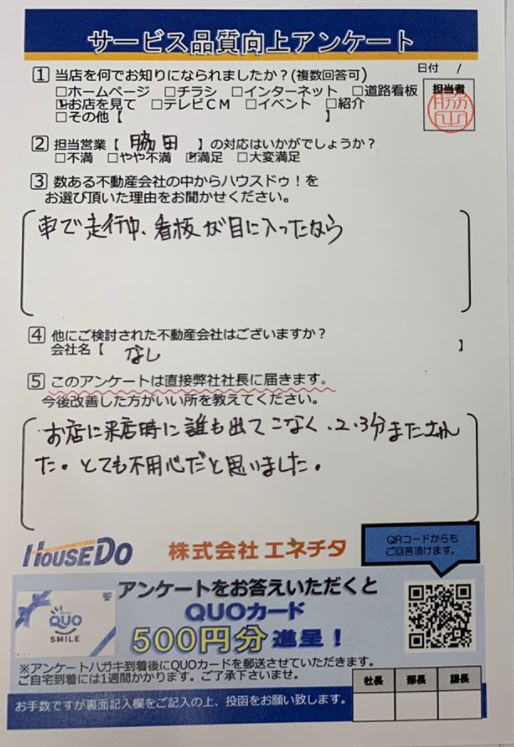 サービス品質向上アンケート
日付 /
1 当店を何でお知りになられましたか?(複数回答可)
□ホームページ □チラシ □インターネット □道路看板
☑お店を見て □テレビCM □イベント □紹介
□その他【 】
担当者
脇田
2 担当営業【 脇田 】の対応はいかがでしょうか?
□不満 □やや不満 ☑満足 □大変満足
3 数ある不動産会社の中からハウスドゥ!を
お選び頂いた理由をお聞かせください。
車で走行中、看板が目に入ったなら
4 他にご検討された不動産会社はございますか?
会社名【 なし 】
5 このアンケートは直接弊社社長に届きます。
今後改善した方がいい所を教えてください。
お店に来店時に誰も出てこなく、2.3分またされ
た。とても不用心だと思いました。
HOUSEDO 株式会社 エネチタ
QRコードからも
ご回答頂けます。
アンケートをお答えいただくと
QUOカード
500円分 進呈!
QUO
SMILE
※アンケートハガキ到着後にQUOカードを郵送させていただきます。
ご自宅到着には1週間かかります。ご了承下さいませ。
社長 部長 課長
お手数ですが裏面記入欄をご記入の上、投函をお願い致します。